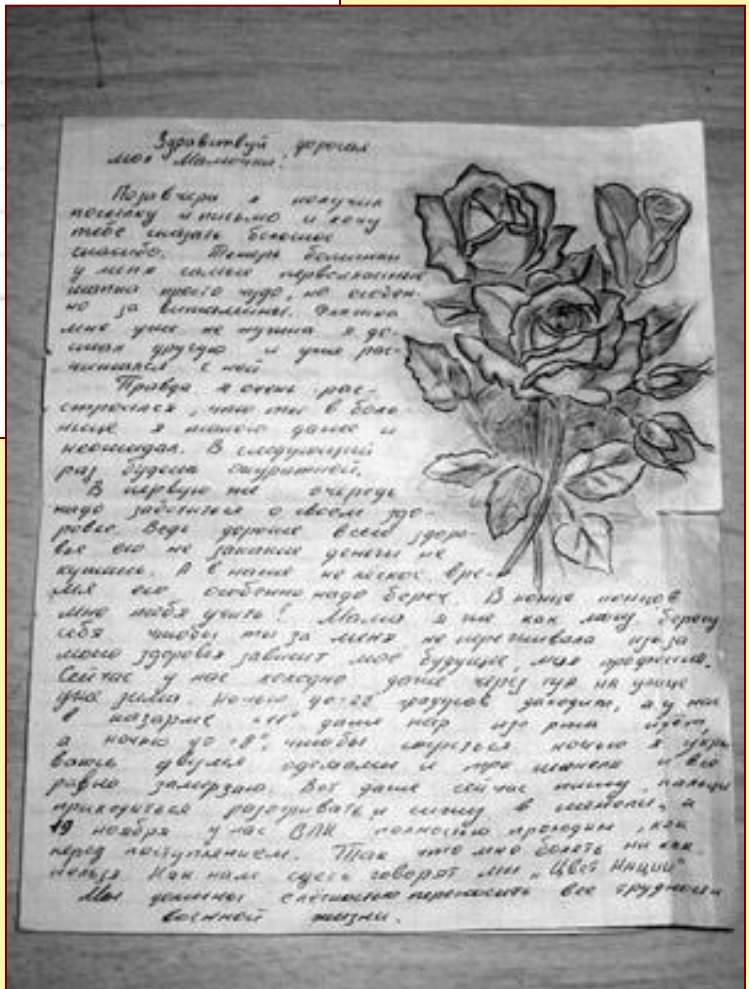 Здравствуй, дорогая
моя Мамочка!
Позавчера я получил
посылку и письмо и хочу
тебе сказать большое
спасибо. Теперь ботинки
у меня самые первоклассные
шапка просто чудо, но особен-
но за витамины.
мне уже не нужна я до-
стал другую и уже рас-
с ней
Правда я очень рас-
строился, что ты в боль-
нице я такого даже и
неожидал. В следующий
раз будешь окуратной.
В первую же очередь
надо заботиться о своём здо-
ровье. Ведь дороже всего здоро-
вье его не за какие деньги не
купишь. А в наше не лёгкое вре-
мя его особенно надо беречь. В конце концов
мне тебя учить! Мама я же как могу берегу
себя чтобы ты за меня не переживала из за
моего здоровья зависит моё будущие, моя профессия.
Сейчас у нас холодно даже через чур на улице
уже зима. Ночью до -28 градусов доходит, а у нас
в казарме +10° даже пар изо рта идёт,
а ночью до +8°, чтобы согреться ночью я укры
ваюсь двумя одеялами и про шинель и всё
равно замерзаю. Вот даже сейчас пишу, пальцы
приходиться разогревать и сижу в шинели, а
19 ноября у нас ВЛК полностью проходим, как
перед поступлением. Так что мне болеть ни как
нельзя. Как нам здесь говорят мы "Цвет Нации"
Мы должны с лёгкостью переносить все трудности
военной жизни.